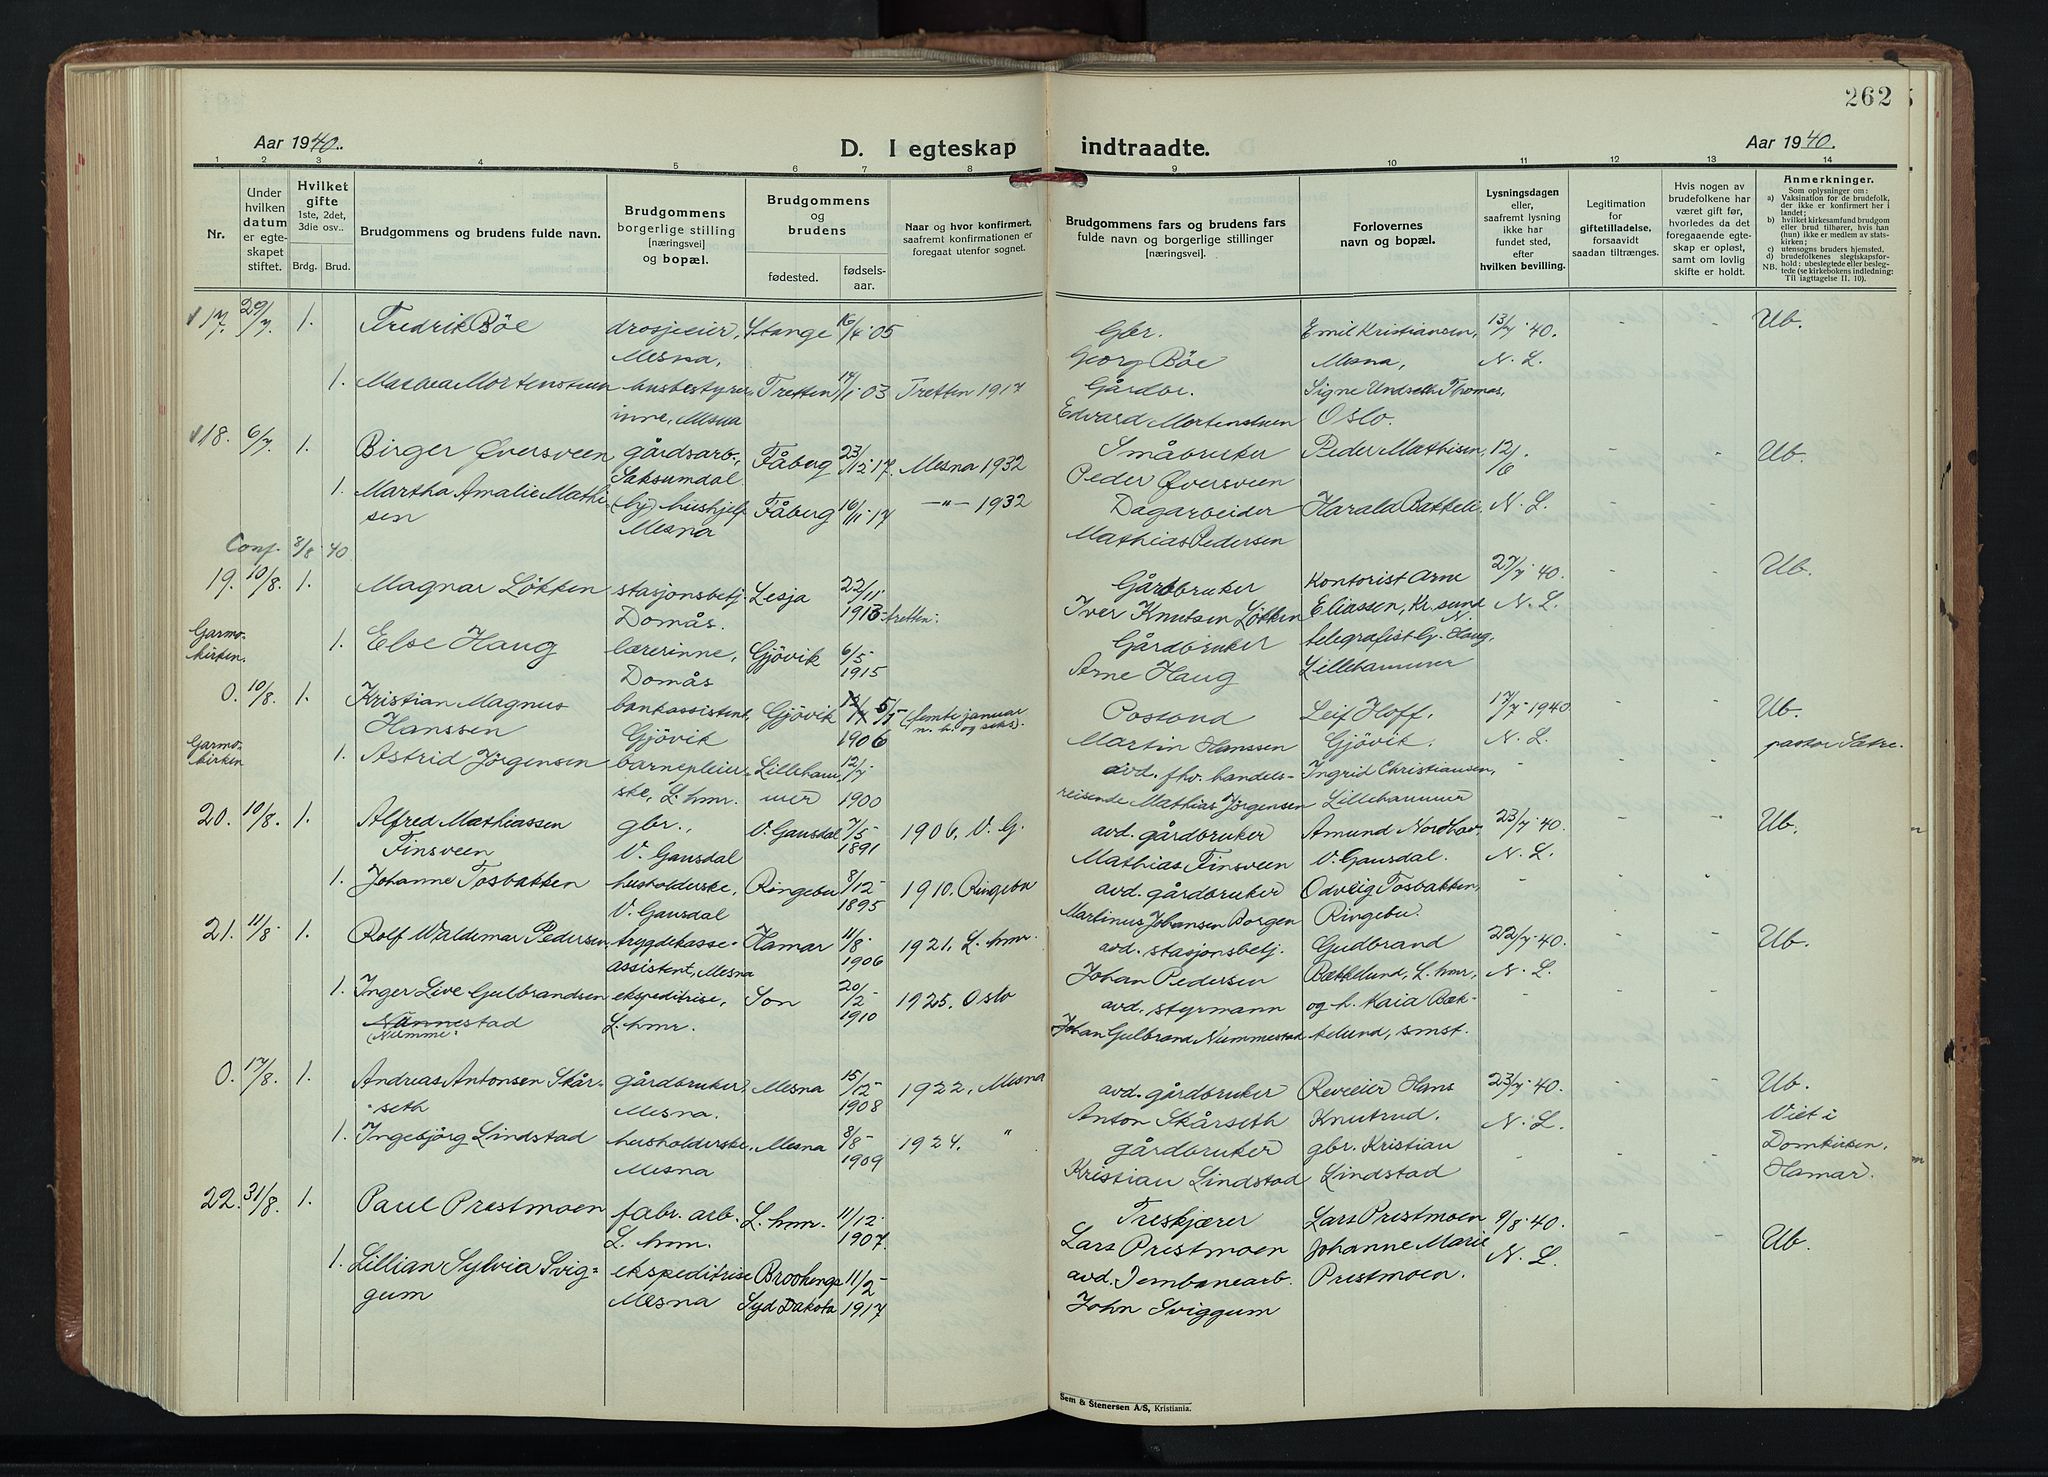 262
Aar 1940.
D. I egteskap indtraadte.
Aar 1940.
1 2 3 4 5 6 7 8 9 10 11 12 13 14
Nr.
Under hvilken datum er egteskapet stiftet.
Hvilket gifte 1ste, 2det, 3die osv..
Brdg. Brud.
Brudgommens og brudens fulde navn.
Brudgommens borgerlige stilling [næringsvei] og bopæl.
Brudgommens og brudens
fødested. fødsels-aar.
Naar og hvor konfirmert, saafremt konfirmationen er foregaat utenfor sognet.
Brudgommens fars og brudens fars fulde navn og borgerlige stillinger [næringsvei].
Forlovernes navn og bopæl.
Lysningsdagen eller, saafremt lysning ikke har fundet sted, efter hvilken bevilling.
Legitimation for giftetilladelse, forsaavidt saadan tiltrænges.
Hvis nogen av brudefolkene har været gift før, hvorledes da det foregaaende egteskap er opløst, samt om lovlig skifte er holdt.
Anmerkninger.
Som oplysninger om:
a) Vaksination for de brudefolk, der ikke er konfirmert her i landet;
b) hvilket kirkesamfund brudgom eller brud tilhører, hvis han (hun) ikke er medlem av statskirken;
c) utensogns bruders hjemsted.
d) brudefolkenes slegtskapsforhold: ubeslegtede eller beslegtede (se kirkebokens indledning: Til iagttagelse II. 10).
NB.
17. 29/7. 1. Fredrik Böe drosjeeier, Stange 16/4 05 Gbr. Emil Kristiansen, 13/7 40. Ub.
Mesna, Georg Böe Mesna, N. L.
1. Mathea Mortenstuen husbestyrer- Tretten 14/1 03 Tretten 1917 Gårdbr. Signe Undseth Thomas,
inne, Mesna Edvard Mortenstuen Oslo.
18. 6/7. 1. Birger Øversveen gårdsarb., Fåberg 23/12 17. Mesna 1932 Småbruker Peder Mathisen, 12/6 Ub.
Saksumdal Peder Øversveen
1. Martha Amalie Mathi- (by) hushjelp Fåberg 16/11 17 —"— 1932 Dagarbeider Harald Batteli N. L.
sen Mesna Mathias Pedersen
Conf. 3/8 40
19. 10/8. 1. Magnar Løkken stasjonsbetj. Lesja 22/11- Gårdbruker Kontorist Arne 27/7 40. Ub.
Domås. 1913 tretten: Iver Knutsen Løkken Eliassen, Kr. sund N. N. L.
Garmo- 1. Else Haug lærerinne, Gjövik 6/5- Gårdbruker telegrafist G. Haug,
kirken. Domås 1915 Arne Haug Lillehammer
0. 10/8. 1. Kristian Magnus bankassistent, Gjövik 5/1- (femte januar Postbud Leif Hoff, 17/7-1940 Ub.
Hanssen Gjövik 1906 n. h. og seks). Martin Hanssen Gjövik. N. L. pastor Sætre.
Garmo- 1. Astrid Jörgensen barnepleier- Lilleham- 12/7 avd. fhv. handels- Ingrid Christiansen,
kirken ske, L. hmr. mer 1900 reisende Mathias Jörgensen Lillehammer
20. 10/8. 1. Alfred Mathiassen gbr., V. Gausdal 7/5- 1906. V. G. avd. gårdbruker Amund Nordhav 23/7 40. Ub.
Finsveen V. Gausdal 1891 Mathias Finsveen V. Gausdal. N. L.
1. Johanne Fosbakken husholderske, Ringebu 8/12- 1910. Ringebu avd. gårdbruker Odveig Fosbakken,
V. Gausdal 1895 Martinus Johansen Borgen Ringebu.
21. 11/8. 1. Rolf Waldemar Pedersen trygdekasse- Hamar 11/8- 1921. L. hmr. avd. stasjonsbetj. Gudbrand 22/7 40. Ub.
assistent, Mesna 1906 Johan Pedersen Bækkelund, L. hmr, N. L.
1. Inger Live Gulbrandsen ekspeditrise, Son 20/2- 1925. Oslo avd. styrmann og h. Kaia Bæk-
Nannestad L. hmr. 1910 Johan Gulbrand Nummestad kelund, smst.
(Numme-
0. 17/8. 1. Andreas Antonsen Skår- gårdbruker, Mesna 15/12- 1922. Mesna avd. gårdbruker Reveeier Hans 23/7 40. Ub.
seth Mesna. 1908 Anton Skårseth Knutrud. N. L. Viet i
1. Ingebjörg Lindstad husholderske, Mesna 8/8- 1924. " gårdbruker gbr. Kristian Domkirken,
Mesna 1909 Kristian Lindstad Lindstad Hamar.
22. 31/8. 1. Paul Prestmoen fabr. arb. L. hmr. 11/12- Treskjærer Lars Prestmoen 9/8 40.
L. hmr. 1907. Lars Prestmoen Johanne Marie N. L. Ub.
1. Lillian Sylvia Svig- ekspeditrise Brookings 11/2- avd. Jernbanearb. Prestmoen.
gum Mesna Syd Dakota 1917 John Sviggum
Sem & Stenersen A/S, Kristiania.